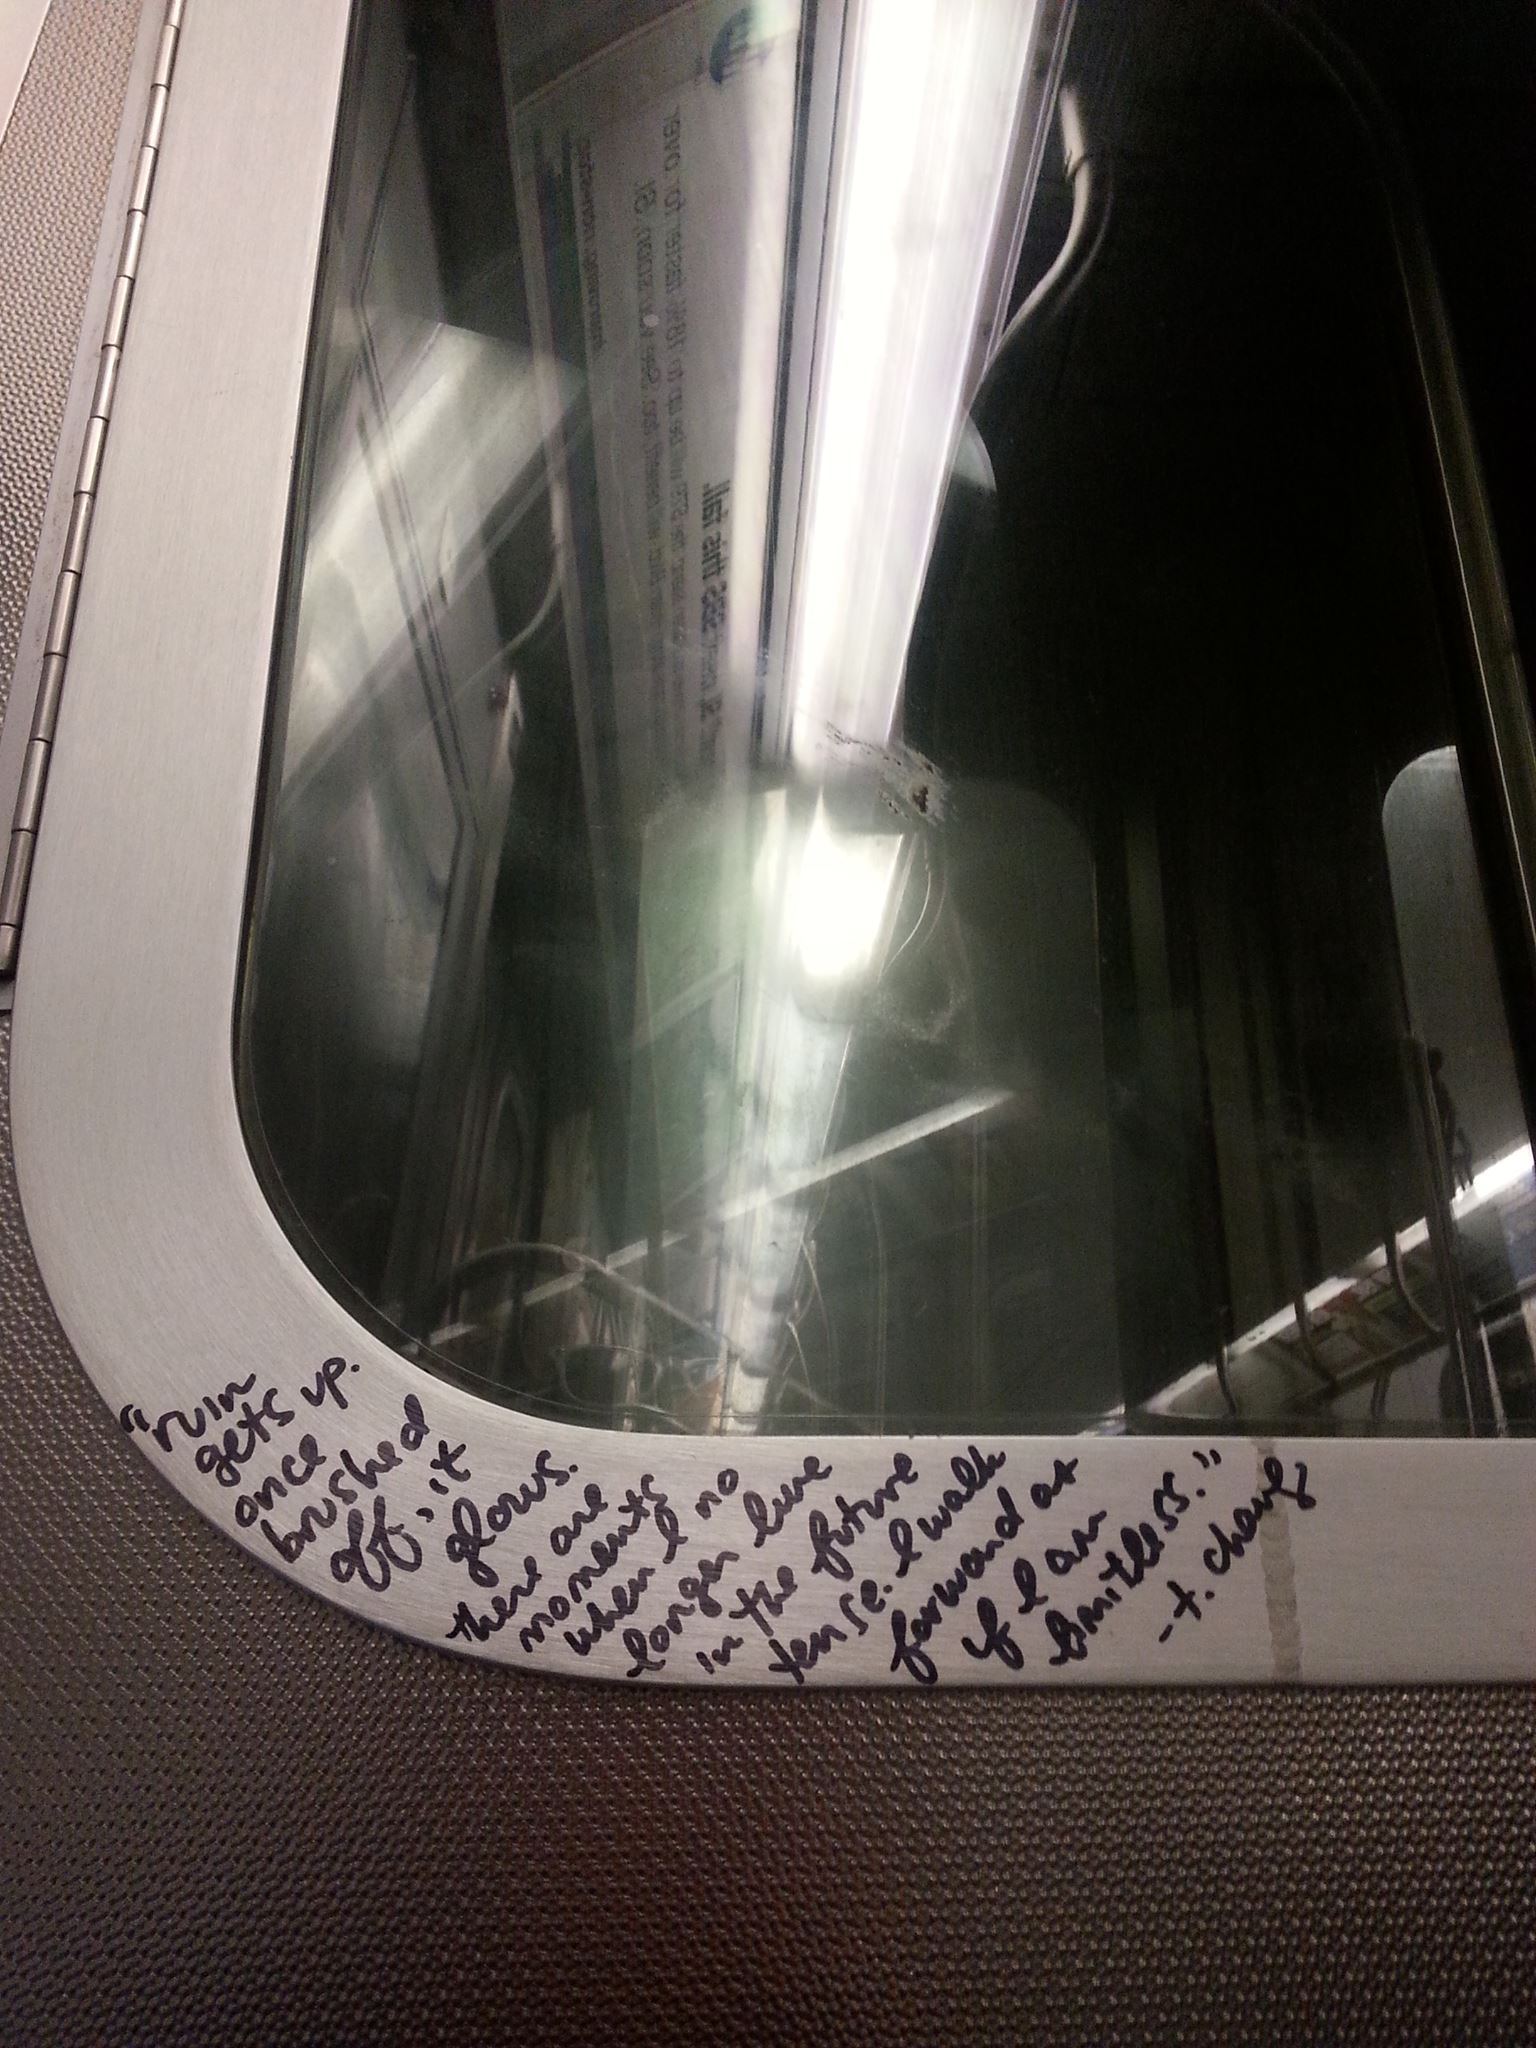 "ruin
gets up.
once
brushed
off, it
glows.
there are
moments
when I no
longer live
in the future
tense. I walk
forward at
if I am
limitless."
- t. chang